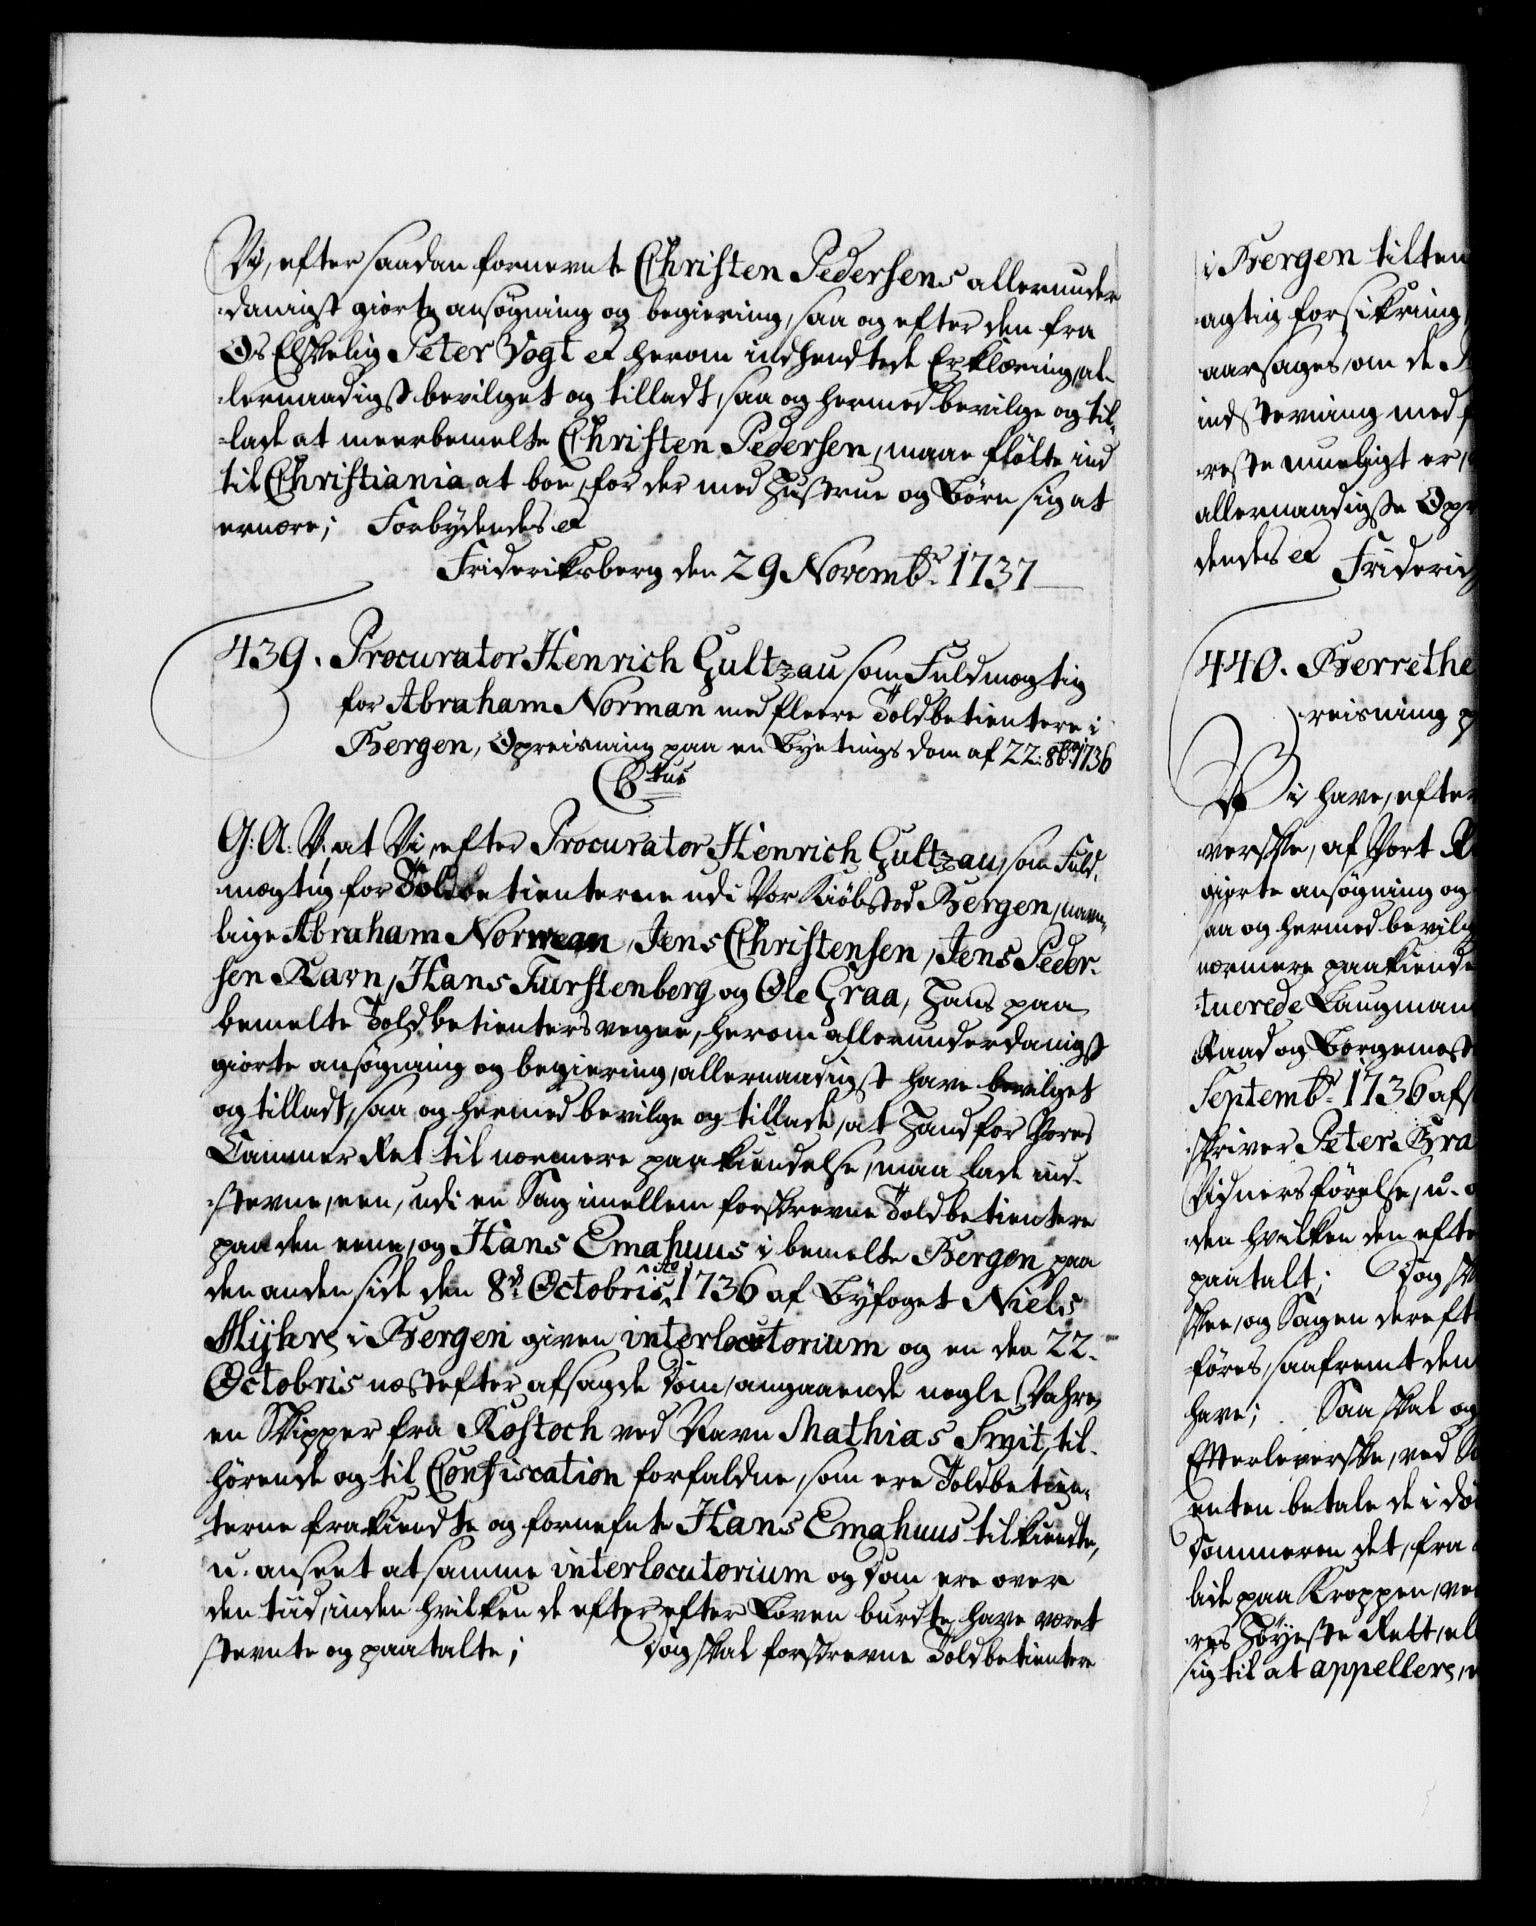 Vi, efter saadan fornevnte Christen Pedersens allerunder
danigst giorte ansøgning og begiering, saa og efter den fra
Os Elskelig Peter Vogt etc herom indhendtede Erklæring, al-
lernaadigst bevilget og tilladt, saa og hermed bevilge og til-
lade at meerbemelte Christen Pedersen, maae flötte ind
til Christiania at boe, for der med Hustrue og Börn sig at
ernære; Forbydendes etc
Frideriksberg den 29 Novembr. 1737
439. Procurator Henrich Gultzau som Fuldmægtig
for Abraham Norman med fleere Toldbetientere i
Bergen, Opreisning paa en Byetings dom af 22: 8br: 1736
Ctus
G: A: V: at Vi, efter Procurator Henrich Gultzau, som Fuld-
mægtig for Toldbetienterne udi Vor Kiöbsted Bergen, navn-
lige Abraham Norman, Jens Christensen, Jens Peder-
sen Ravn, Hans Furstenberg og Ole Graa, Hans paa
bemelte Toldbetienters vegne, herom allerunderdanigst
giorte ansøgning og begiering, allernaadigst have bevilget
og tilladt, saa og hermed bevilge og tillade, at Hand for Vores
Cammer Ret til nærmere paakiendelse, maa lade ind-
stevne, een, udi en Sag imellem forskrevne Toldbetientere
paa den eene, og Hans Emahuus i bemelte Bergen paa
den anden side den 8de Octobris Ao 1736 af Byfoget Niels
Myhre i Bergen given interlocutorium og en den 22.
Octobris næstefter afsagde Dom, angaaende nogle Vahre,
en Skipper fra Rostoch ved Navn Mathias Smit, til-
hörende og til Confiscation forfaldne, som ere Toldbetien-
terne frakiendte og fornefnte Hans Emahuus tilkiendte,
u-anseet at samme interlocutorium og Dom ere over
den tiid, inden hvilken de efter efter Loven burdte have været
stevnte og paatalte; Dog skal forskrevne Toldbetientere
i Bergen tilten
agtig forsikring
aarsages, om de
indstevning med
reste mueligt er,
allernaadigste Opr
dendes etc Frideric
440. Berrethe
reisning p
Vi have, efter
verske, af Vort R
giorte ansøgning og
saa og hermed bevilg
nærmere paakiende
tuerede Laugman
Raad og Borgemest
Septembr. 1736 afs
skriver Peter Bra
Vidners förelse, u-a
den hvilken den efte
paatalt; Dog sk
skee, og Sagen dereft
föres, saafremt den
have; Saa skal og
Efterleverske, ved S
enten betale de i do
Dommeren det, fra
lide paa Kroppen, ve
res Höyeste Rett, el
sig til at appellere,